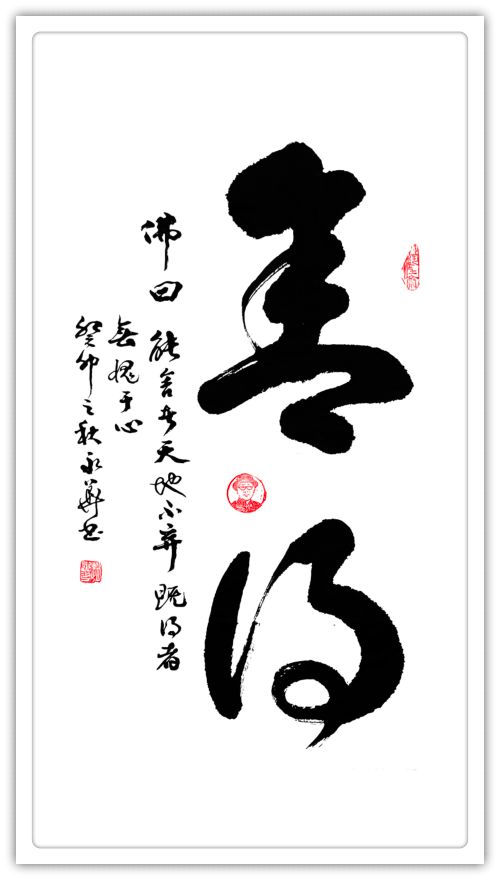 舍得
佛曰 能舍者天地不弃 既得者
無愧于心
癸卯之秋永華书